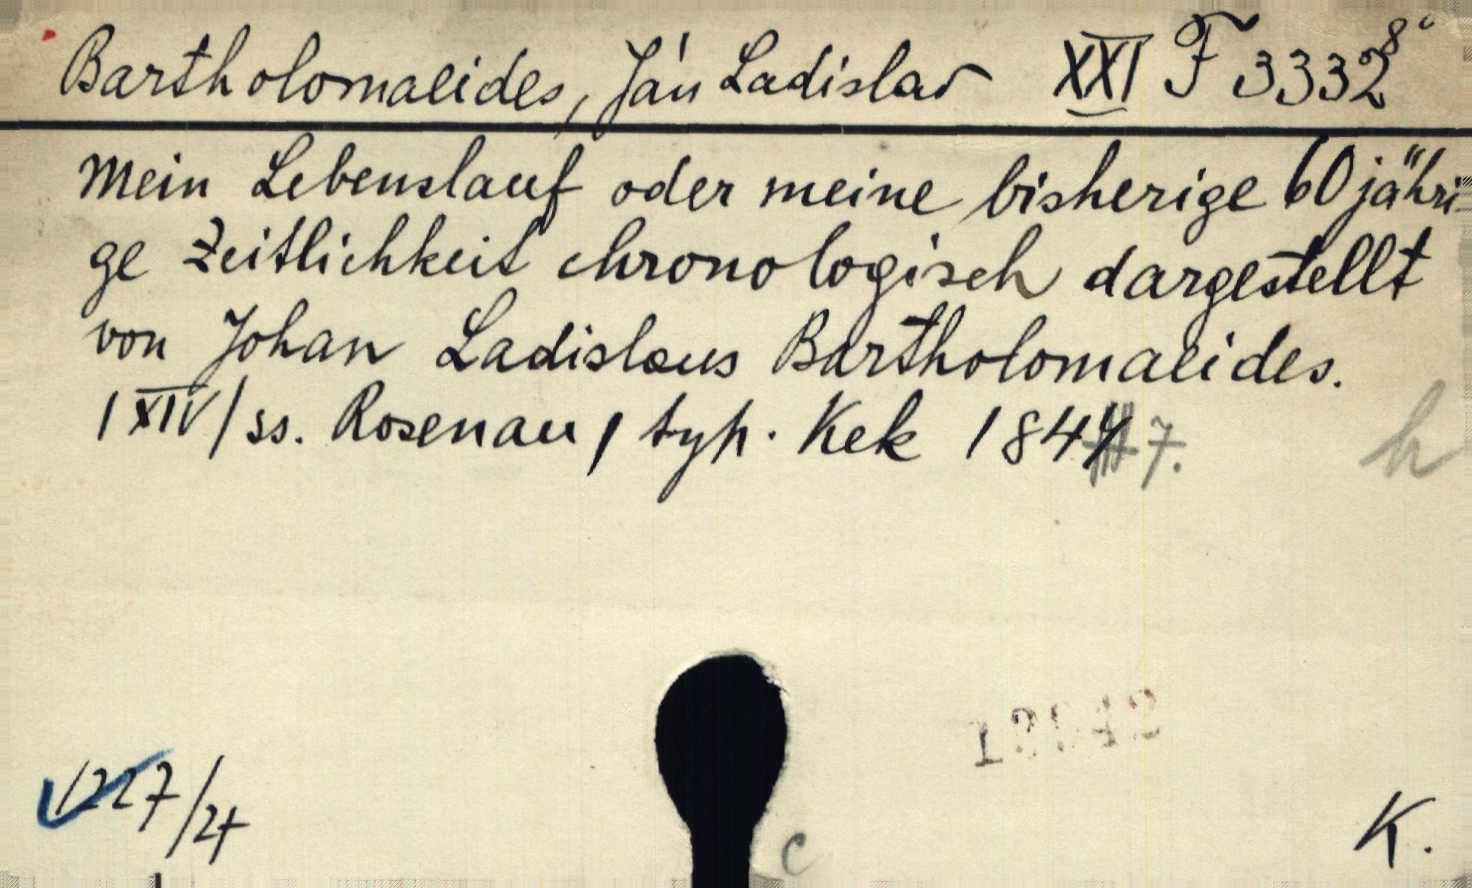 Bartholomaeides, Ján Ladislav XXI F 3332 8°
Mein Lebenslauf oder meine bisherige 60jähri-
ge Zeitlichkeit chronologisch dargestellt
von Johan Ladislaus Bartholomaeides.
/XIV/ ss. Rosenau, typ. Kek 184 7.
h
1227/24
c
K.